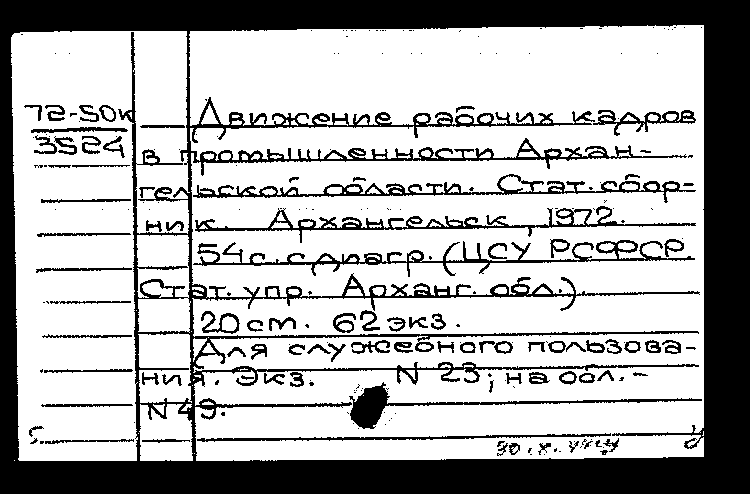 72-50к
3524
Движение рабочих кадров
в промышленности Архан-
гельской области. Стат. сбор-
ник. Архангельск, 1972.
54 с. с диагр. (ЦСУ РСФСР.
Стат. упр. Арханг. обл.)
20 см. 62 экз.
Для служебного пользова-
ния. Экз. N 23; на обл. -
N 49.